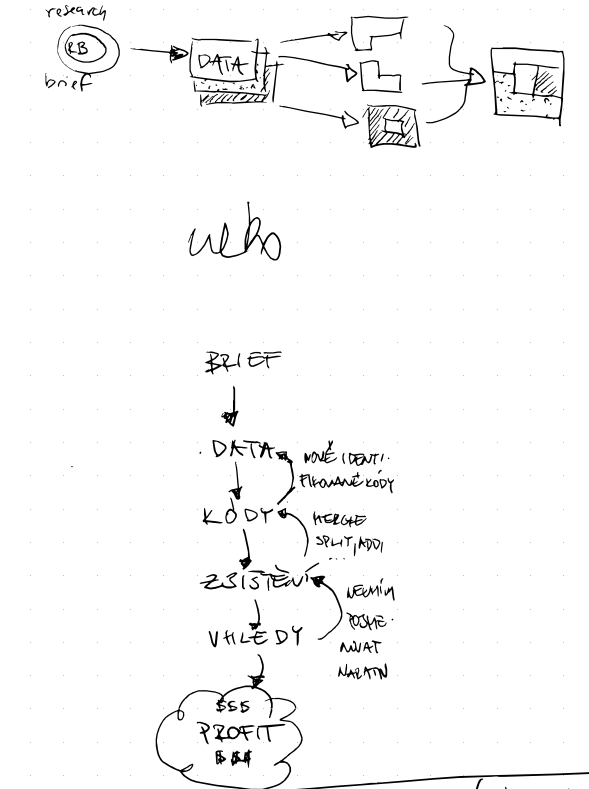 research
RB
brief
DATA
nebo
BRIEF
DATA
NOVĚ IDENTI-
FIKOVANÉ KÓDY
KÓDY
MERGE
SPLIT, ADD,
...
ZJIŠTĚNÍ
VHLEDY
POJME-
NOVAT
$$$
PROFIT
$$$